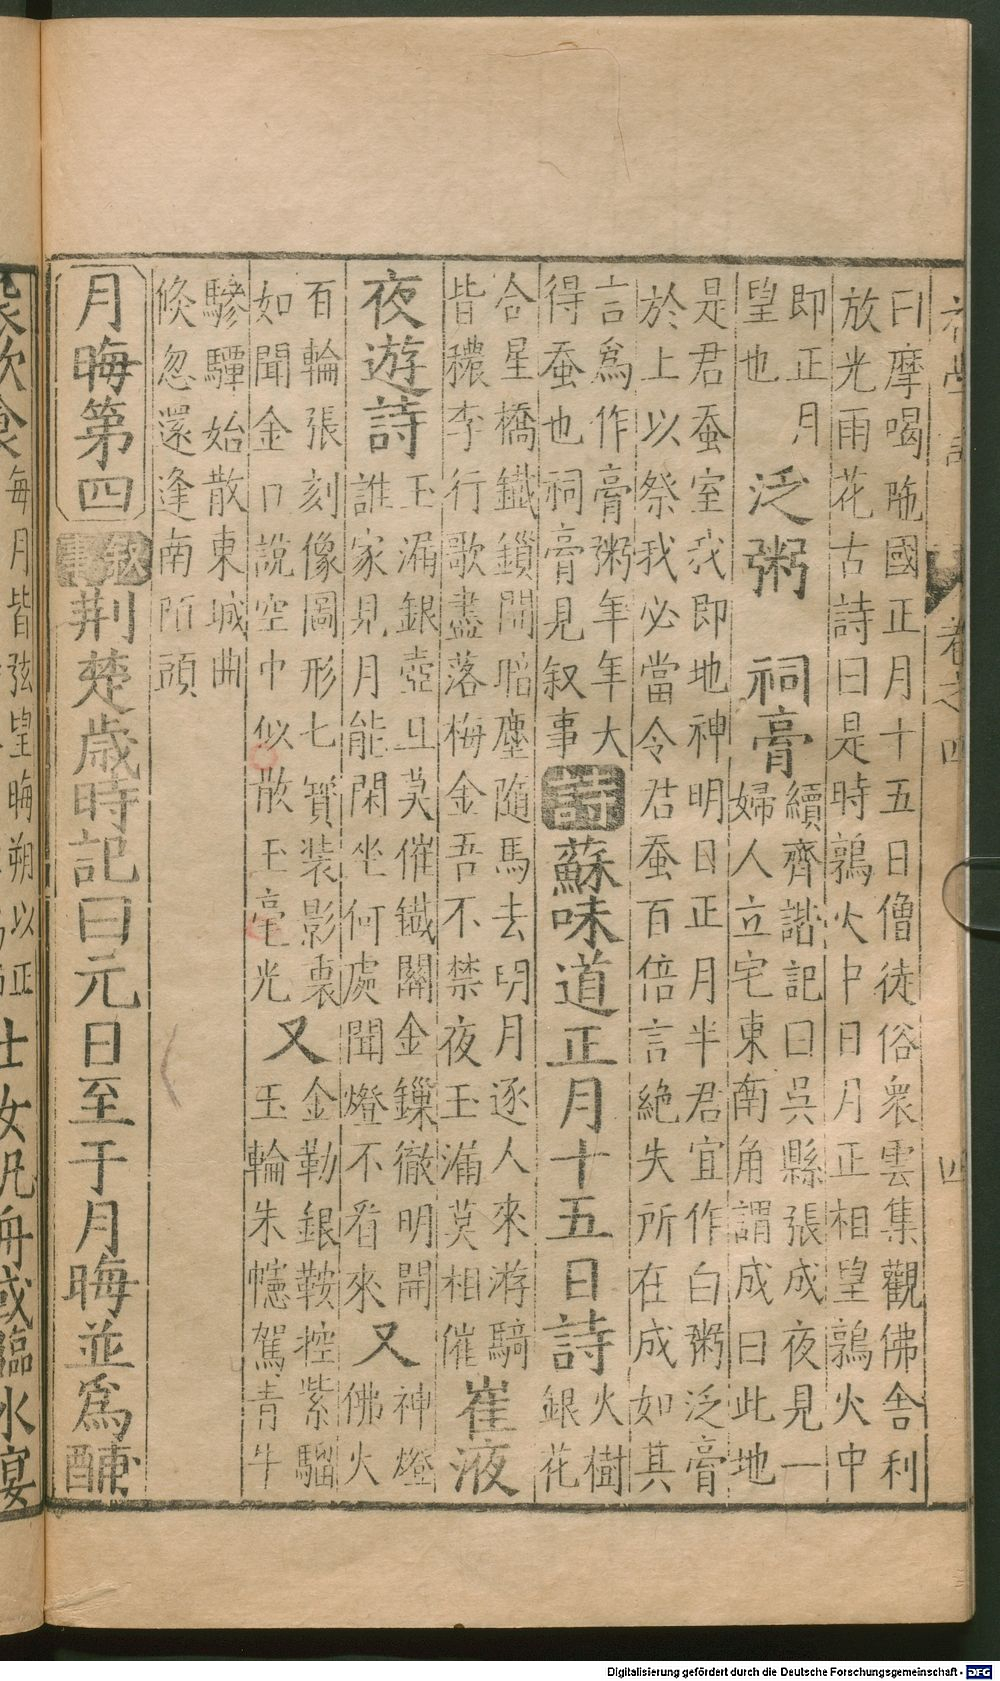 曰摩喝陁國正月十五日僧徒俗衆雲集觀佛舎利
放光雨花古詩曰是時鶉火中日月正相望鶉火中
即正月
望也
泛粥 祠膏
續齊諧記曰吳縣張成夜見一
婦人立宅東南角謂成曰此地
是君蚕室我即地神明日正月半君宜作白粥泛膏
於上以祭我必當令君蚕百倍言絶失所在成如其
言爲作膏粥年年大
得蚕也祠膏見叙事
詩
蘇味道正月十五日詩
火樹
銀花
合星橋鐵鎖開暗塵隨馬去明月逐人來游騎
皆穠李行歌盡落梅金吾不禁夜玉漏莫相催
崔液
夜遊詩
玉漏銀壺且莫催鐵關金鏁徹明開
誰家見月能閑坐何處聞燈不看來
又
神燈
佛火
百輪張刻像圖形七寳装影裏
如聞金口說空中似散玉毫光
又
金勒銀鞍控紫騮
玉輪朱幰駕青牛
驂驔始散東城曲
倐忽還逢南陌頭
月晦第四
叙
事
荆楚歳時記曰元日至于月晦並爲酺
聚飲食
每月皆弦望晦朔以正
士女汎舟或臨水宴
卷之四
四
Digitalisierung gefördert durch die Deutsche Forschungsgemeinschaft - DFG